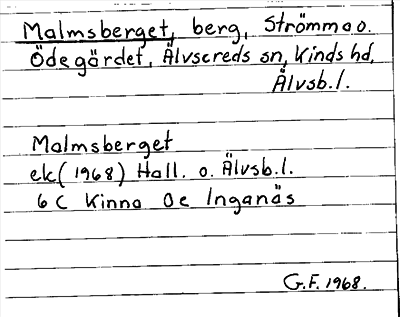 Malmsberget, berg, Strömma o.
Ödegärdet, Älvsereds sn, Kinds hd,
Älvsb.l.
Malmsberget
ek (1968) Hall. o. Älvsb.l.
6 C Kinna 0 e Inganäs
G.F. 1968.